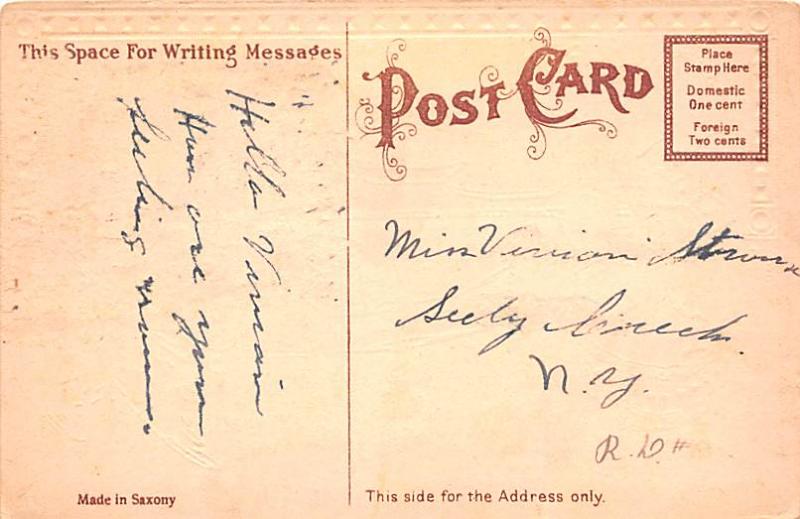 This Space For Writing Messages
Hello Vivian
How are you
feeling
POST CARD
Place
Stamp Here
Domestic
One cent
Foreign
Two cents
Miss Vivian
Seely Creek
N.Y.
R.D#
Made in Saxony
This side for the Address only.